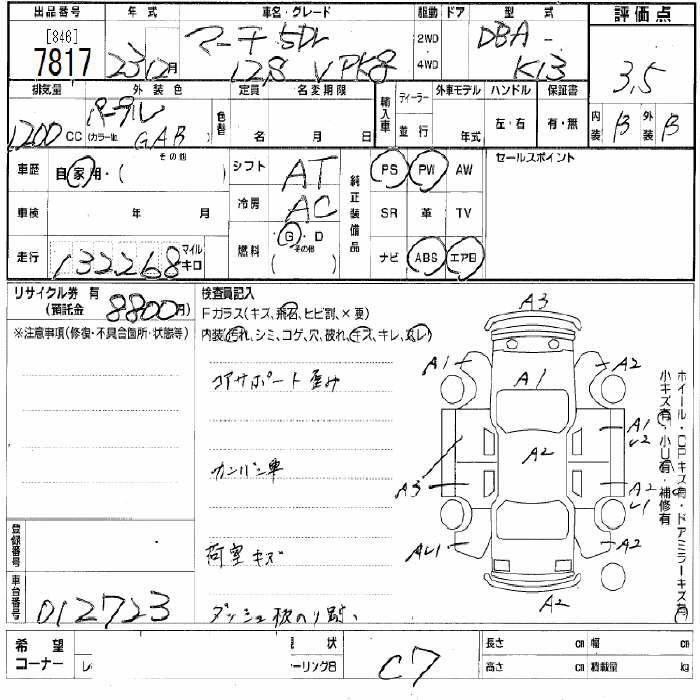 出品番号 年式 車名・グレード 駆動 ドア 型式 評価点
[846]
7817
23 12月
マーチ 5Dr
12S V PK8
2WD
・
4WD
DBA-
K13
3,5
排気量 外装色 定員 名変期限
輸入車
ディーラー 外車モデル ハンドル 保証書
1200cc
パープル
(カラーNo. GAB
色替
名 年 月 日
並行 年式 左・右 有・無
内装 B 外装 B
車歴 自家用・( その他
シフト AT
純正装備品
PS PW AW
セールスポイント
車検 年 月
冷房 AC
SR 革 TV
走行 132268 マイル キロ
燃料 G・D
(その他)
ナビ ABS エアB
リサイクル券 有
(預託金 8800円)
検査員記入
Fガラス(キズ、飛石、ヒビ割、×要)
※注意事項(修復・不具合箇所・状態等)
内装(汚れ、シミ、コゲ、穴、破れ、キズ、キレ、スレ)
コアサポート歪み
カンバン車
荷室キズ
A3
A1
A2
A1
A1
A2
A2
A3
A2
A2
A2
ホイール・CPキズ有・ドアミラーキズ有
小キズ有・小U有・補修有
登録番号
車台番号
012723
希望
コーナー
現状
ーリング日
C7
長さ cm 幅 cm
高さ cm 積載量 kg